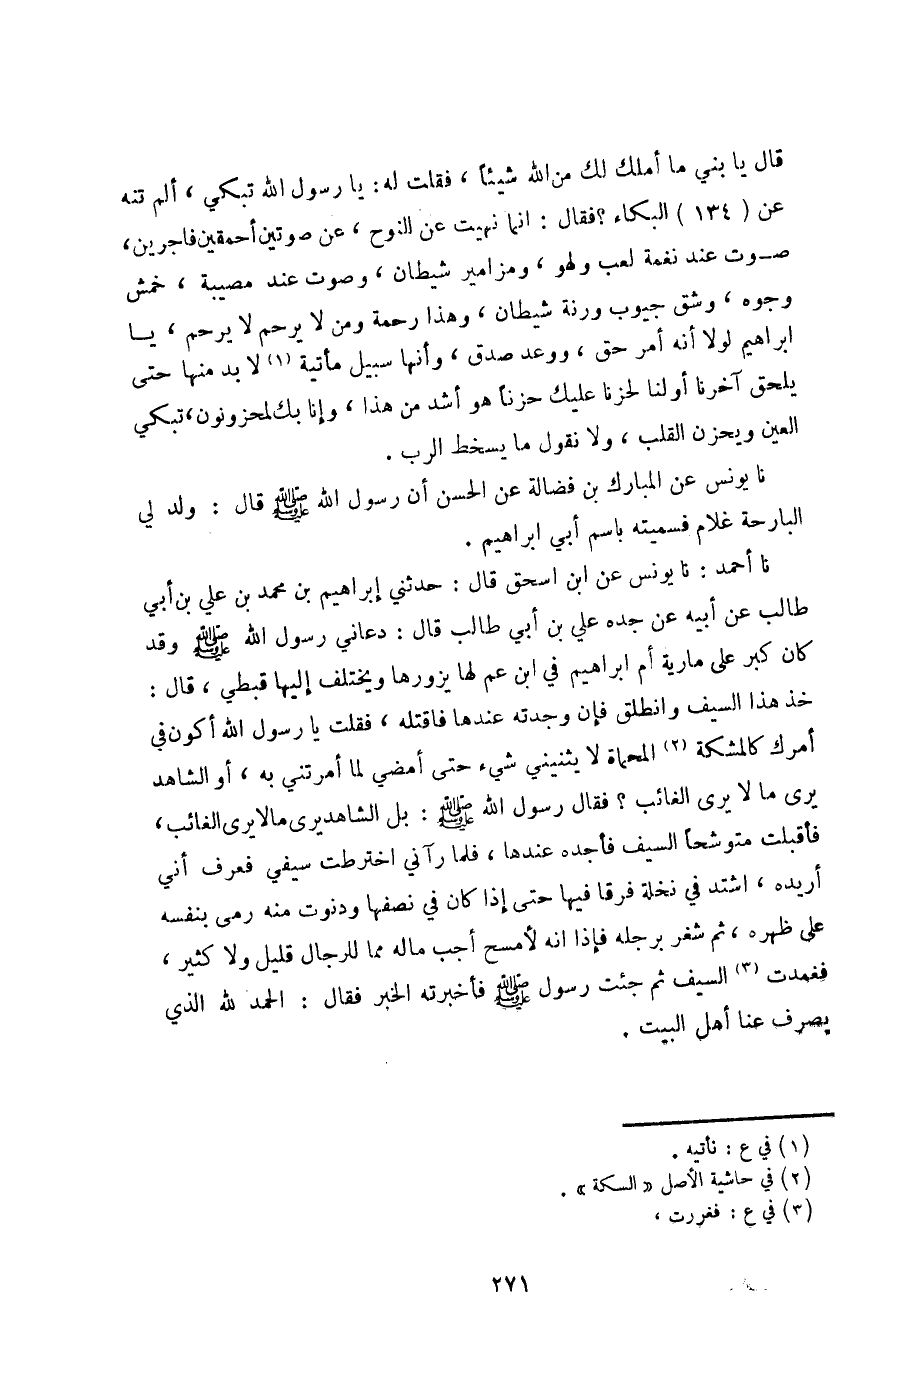 قال يا بني ما أملك لك من الله شيئاً ، فقلت له : يا رسول الله تبكي ، ألم تنه
عن ( ١٣٤ ) البكاء ؟ فقال : انما نهيت عن النوح ، عن صوتين أحمقين فاجرين ،
صـوت عند نغمة لعب ولهو ، ومزامير شيطان ، وصوت عند مصيبة ، خمش
وجوه ، وشق جيوب ورنة شيطان ، وهذا رحمة ومن لا يرحم لا يرحم ، يـا
ابراهيم لولا أنه أمر حق ، ووعد صدق ، وأنها سبيل مأتية (١) لا بد منها حتى
يلحق آخرنا أولنا لحزنا عليك حزناً هو أشد من هذا ، وإنا بك لمحزونون ، تبكي
العين ويحزن القلب ، ولا نقول ما يسخط الرب .
نا يونس عن المبارك بن فضالة عن الحسن أن رسول الله ﷺ قال : ولد لي
البارحة غلام فسميته باسم أبي ابراهيم .
نا أحمد : نا يونس عن ابن اسحق قال : حدثني إبراهيم بن محمد بن علي بن أبي
طالب عن أبيه عن جده علي بن أبي طالب قال : دعاني رسول الله ﷺ وقد
كان كبر على مارية أم ابراهيم في ابن عم لها يزورها ويختلف إليها قبطي ، قال :
خذ هذا السيف وانطلق فإن وجدته عندها فاقتله ، فقلت يا رسول الله أكون في
أمرك كالمشكة (٢) المحماة لا يثنيني شيء حتى أمضي لما أمرتني به ، أو الشاهد
يرى ما لا يرى الغائب ؟ فقال رسول الله ﷺ : بل الشاهد يرى مالا يرى الغائب ،
فأقبلت متوشحاً السيف فأجده عندها ، فلما رآني اخترطت سيفي فعرف أني
أريده ، اشتد في نخلة فرقا فيها حتى إذا كان في نصفها ودنوت منه رمى بنفسه
على ظهره ، ثم شغر برجله فإذا انه لأمسح أجب ماله مما للرجال قليل ولا كثير ،
فغمدت (٣) السيف ثم جئت رسول ﷺ فأخبرته الخبر فقال : الحمد لله الذي
يصرف عنا أهل البيت .
(١) في ع : نأتيه .
(٢) في حاشية الأصل « السكة » .
(٣) في ع : فغررت ،
٢٧١